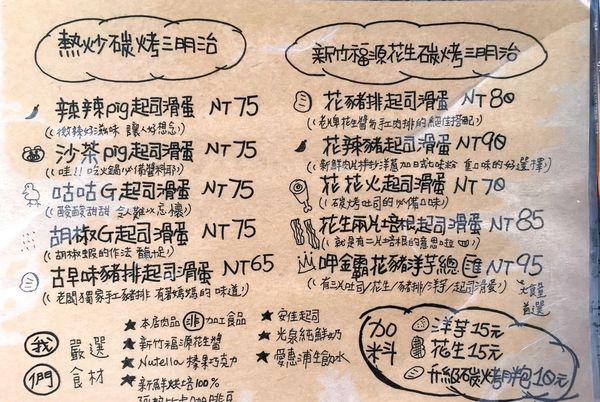 熱炒碳烤三明治
辣辣pig起司滑蛋 NT75
((微辣好滋味 讓人好想念))
沙茶pig起司滑蛋 NT75
((哇!! 吃火鍋必備醬料耶))
咕咕G起司滑蛋 NT75
((酸酸甜甜 令人難以忘懷))
胡椒G起司滑蛋 NT75
((胡椒蝦的作法 雞是))
古早味豬排起司滑蛋 NT65
((老闆獨家手工豬排 有著媽媽的味道))
我們 嚴選食材
★本店肉品非加工食品
★新竹福源花生醬
★Nutella 榛果巧克力
★新鮮烘培100%
阿拉比卡咖啡豆
★安佳起司
★光泉純鮮奶
★愛惠浦生飲水
新竹福源花生碳烤三明治
花豬排起司滑蛋 NT80
((老牌花生醬与手工肉排的絕佳搭配))
花辣豬起司滑蛋 NT90
((新鮮肉片拌炒洋蔥加日式七味粉 重口味的好選擇))
花花火起司滑蛋 NT70
((碳烤吐司的必備口味))
花生兩片培根起司滑蛋 NT85
((就是有二片培根的意思啦))
呷金霸花豬洋芋總匯 NT95
((有三片吐司/花生/豬排/洋芋/起司滑蛋))大食量首選
加料
洋芋15元
花生15元
升級碳烤麵包10元